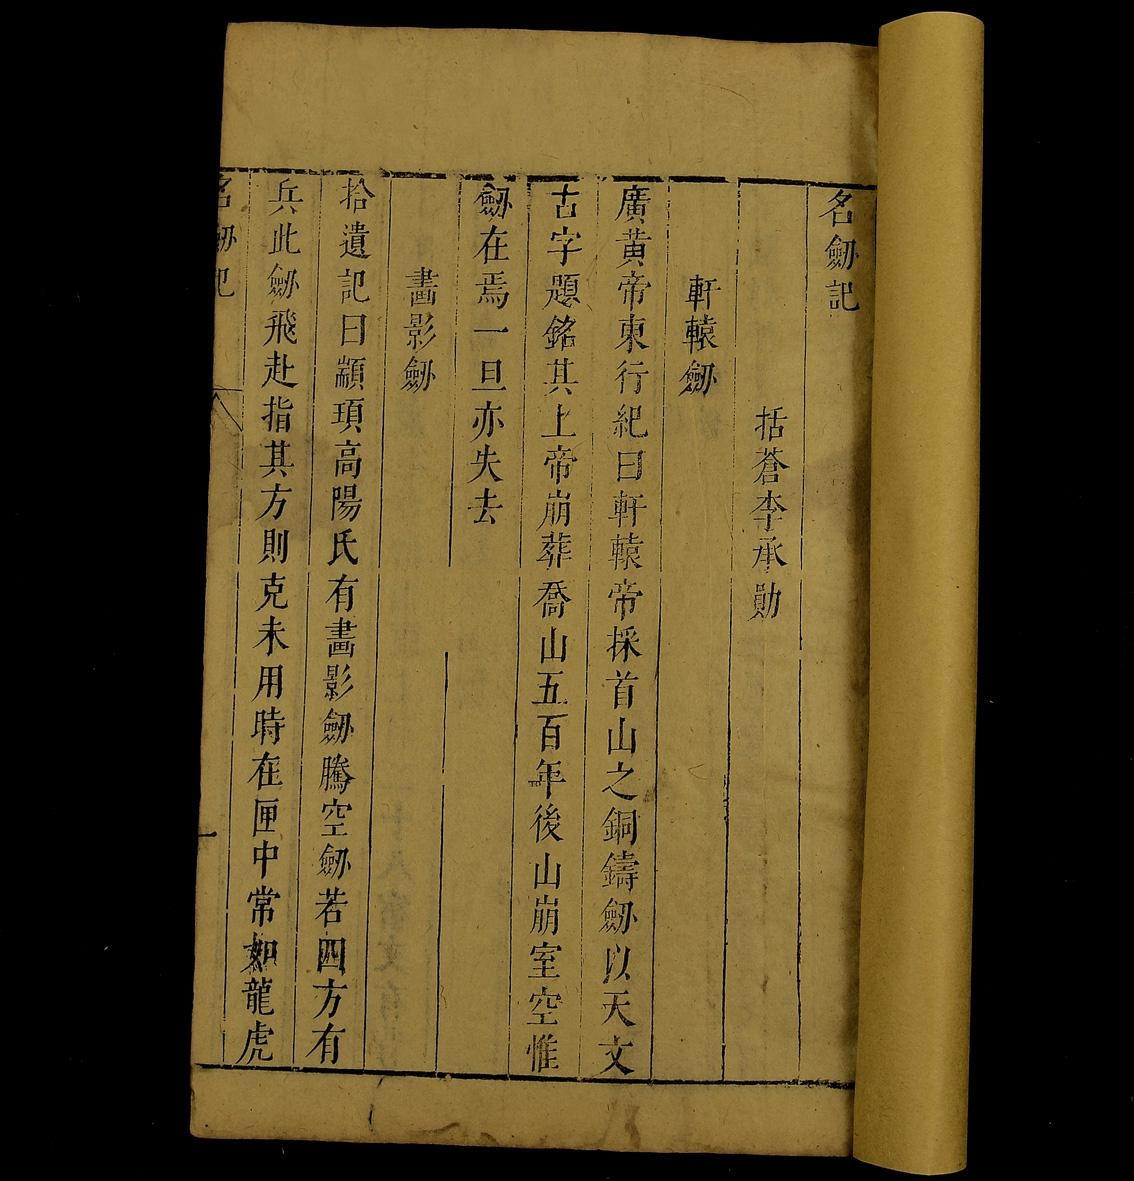 名劒記
括蒼李承勛
軒轅劒
廣黄帝東行紀曰軒轅帝採首山之銅鑄劒以天文
古字題銘其上帝崩葬喬山五百年後山崩室空惟
劒在焉一旦亦失去
畫影劒
拾遺記曰顓頊高陽氏有畫影劒騰空劒若四方有
兵此劒飛赴指其方則克未用時在匣中常如龍虎
名劒記
一